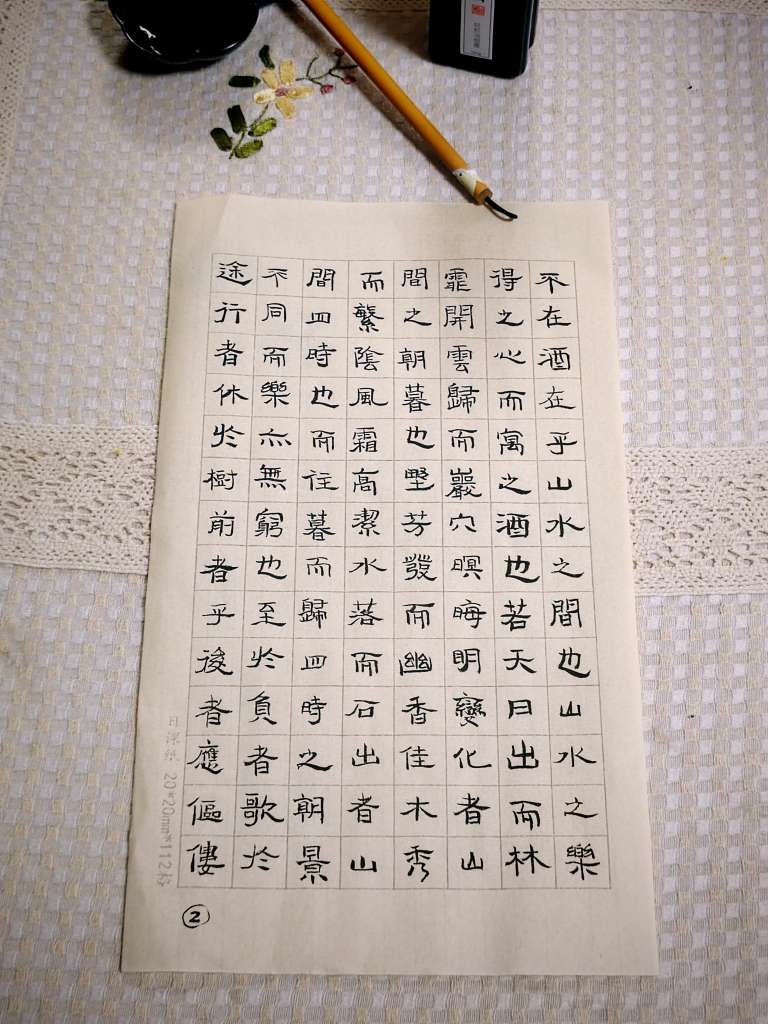 不在酒在乎山水之間也山水之樂
得之心而寓之酒也若天日出而林
霏開雲歸而巖穴暝晦明變化者山
間之朝暮也野芳發而幽香佳木秀
而繁陰風霜高潔水落而石出者山
間四時也而往暮而歸四時之朝景
不同而樂亦無窮也至於負者歌於
途行者休於樹前者乎後者應傴僂
②
日课纸 20*20mm*112格